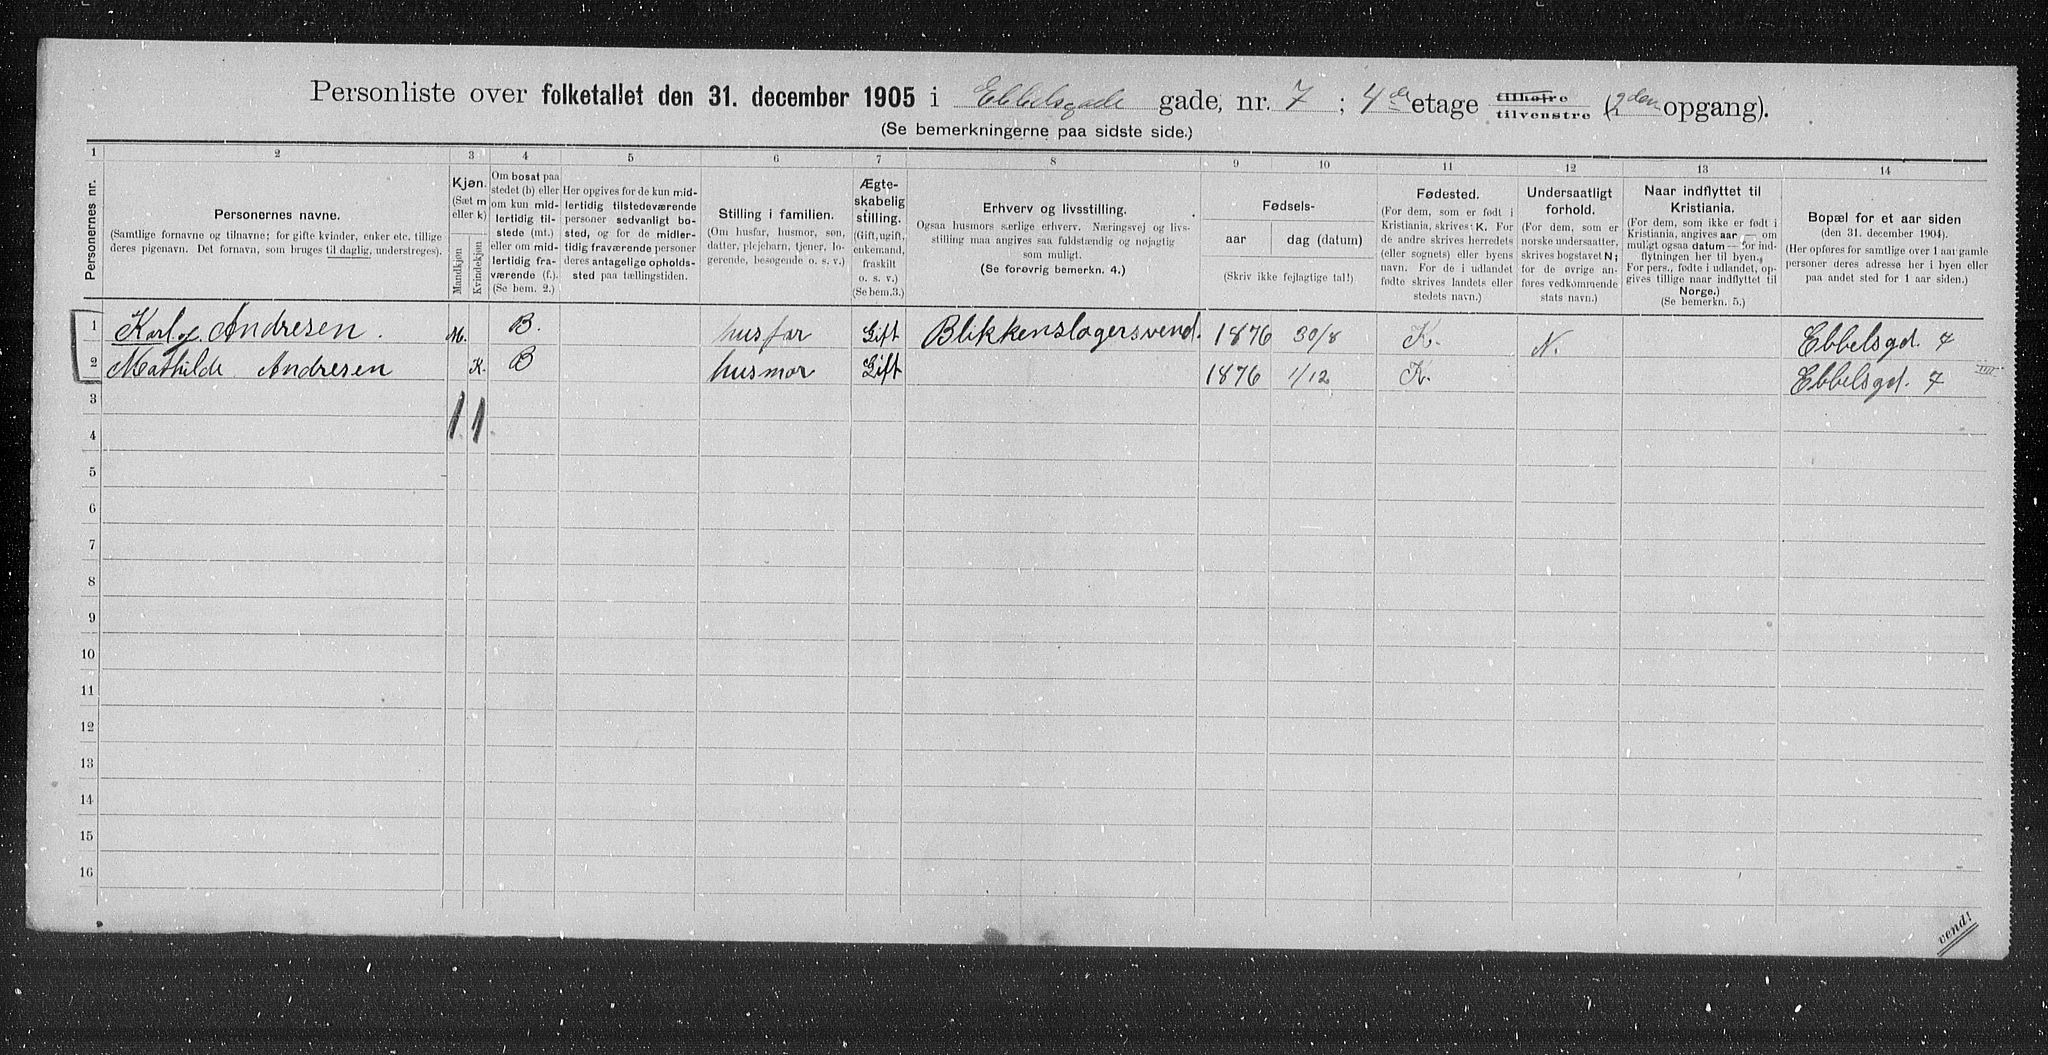 Personliste over folketallet den 31. december 1905 i Ebbelsgade gade, nr. 7 ; 4de etage tilhøire tilvenstre (2den opgang).
(Se bemerkningerne paa sidste side.)
1 2 3 4 5 6 7 8 9 10 11 12 13 14
Personernes nr.
Personernes navne.
(Samtlige fornavne og tilnavne; for gifte kvinder, enker etc. tillige
deres pigenavn. Det fornavn, som bruges til daglig, understreges).
Kjøn.
(Sæt m
eller k)
Mandkjøn
Kvindekjøn
Om bosat paa
stedet (b) eller
om kun mid-
lertidig til-
stede (mt.)
eller om mid-
lertidig fra-
værende (f.)
(Se bem. 2.)
Her opgives for de kun mid-
lertidig tilstedeværende
personer sedvanligt bo-
sted, og for de midler-
tidig fraværende personer
deres antagelige opholds-
sted paa tællingstiden.
Stilling i familien.
(Om husfar, husmor, søn,
datter, plejebarn, tjener, lo-
gerende, besøgende o. s. v.)
Ægte-
skabelig
stilling.
(Gift, ugift,
enkemand,
fraskilt
o. s. v.)
(Se bem.3.)
Erhverv og livsstilling.
Ogsaa husmors særlige erhverv. Næringsvej og livs-
stilling maa angives saa fuldstændig og nøjagtig
som muligt.
(Se forøvrig bemerkn. 4.)
Fødsels-
aar dag (datum)
(Skriv ikke fejlagtige tal!)
Fødested.
(For dem, som er født i
Kristiania, skrives K. For
de andre skrives herredets
(eller sognets) eller byens
navn. For de i udlandet
fødte skrives landets eller
stedets navn.)
Undersaatligt
forhold.
(For dem, som er
norske undersaatter,
skrives bogstavet N;
for de øvrige an-
føres vedkommende
stats navn.)
Naar indflyttet til
Kristiania.
(For dem, som ikke er født i
Kristiania, angives aar — om
muligt ogsaa datum — for ind-
flytningen her til byen.
For pers., født i udlandet, op-
gives tillige naar indflyttet til
Norge.)
(Se bemerkn. 5.)
Bopæl for et aar siden
(den 31. december 1904).
(Her opføres for samtlige over 1 aar gamle
personer deres adresse her i byen eller
paa andet sted for 1 aar siden.)
1 Karl Andresen. M. B. husfar Gift Blikkenslagersvend. 1876 30/8 K. N. Ebbelsgd. 7
2 Mathilde Andresen K. B husmor Gift 1876 1/12 K. Ebbelsgd. 7
3
1. 1
4
5
6
7
8
9
10
11
12
13
14
15
16
vend!